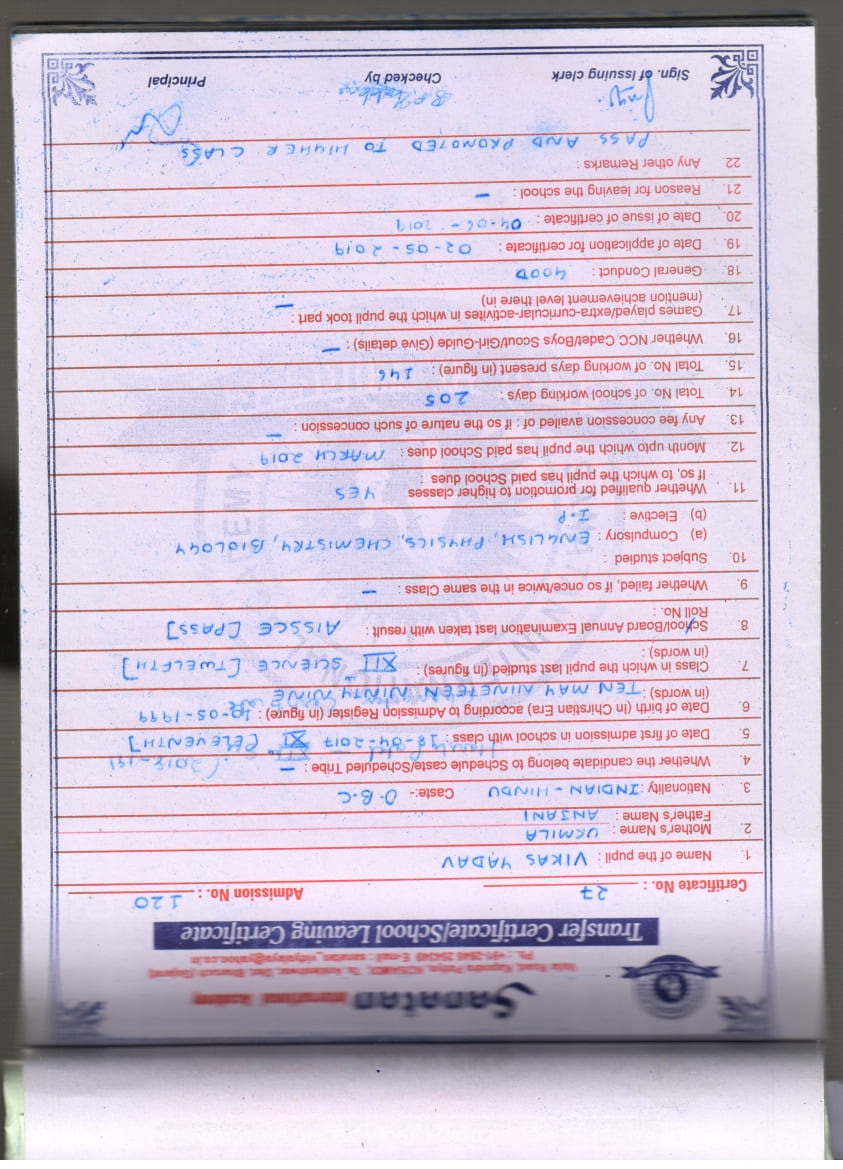 Sanatan International Academy
Valia Road, Kapodra Patiya, KOSAMDI, Ta. Ankleshwar, Dist. Bharuch (Gujarat)
Ph. : +91-2646 254349 E-mail : sanatan_vidyalaya@yahoo.co.in
Transfer Certificate/School Leaving Certificate
Certificate No. : 27 Admission No. : 120
1. Name of the pupil : VIKAS YADAV
2. Mother's Name : URMILA
Father's Name : ANJANI
3. Nationality : INDIAN - HINDU Caste:- O.B.C
4. Whether the candidate belong to Schedule caste/Scheduled Tribe : –
5. Date of first admission in school with class : 18-04-2017 XI [ELEVENTH]
6. Date of birth (in Christian Era) according to Admission Register (in figure) : 10-05-1999
(in words) : TEN MAY NINETEEN NINTY NINE
7. Class in which the pupil last studied (in figures) : XII SCIENCE [TWELFTH]
(in words) :
8. School/Board Annual Examination last taken with result : AISSCE [PASS]
Roll No. :
9. Whether failed, if so once/twice in the same Class : –
10. Subject studied :
(a) Compulsory : ENGLISH, PHYSICS, CHEMISTRY, BIOLOGY
(b) Elective : I.P
11. Whether qualified for promotion to higher classes YES
If so, to which the pupil has paid School dues :
12. Month upto which the pupil has paid School dues : MARCH 2019
13. Any fee concession availed of : if so the nature of such concession : –
14. Total No. of school working days : 205
15. Total No. of working days present (in figure) : 146
16. Whether NCC Cadet/Boys Scout/Girl-Guide (Give details) : –
17. Games played/extra-curricular-activites in which the pupil took part : –
(mention achievement level there in)
18. General Conduct : GOOD
19. Date of application for certificate : 02-05-2019
20. Date of issue of certificate : 04-06-2019
21. Reason for leaving the school : –
22. Any other Remarks :
PASS AND PROMOTED TO HIGHER CLASS
Sign. of Issuing clerk Checked by Principal